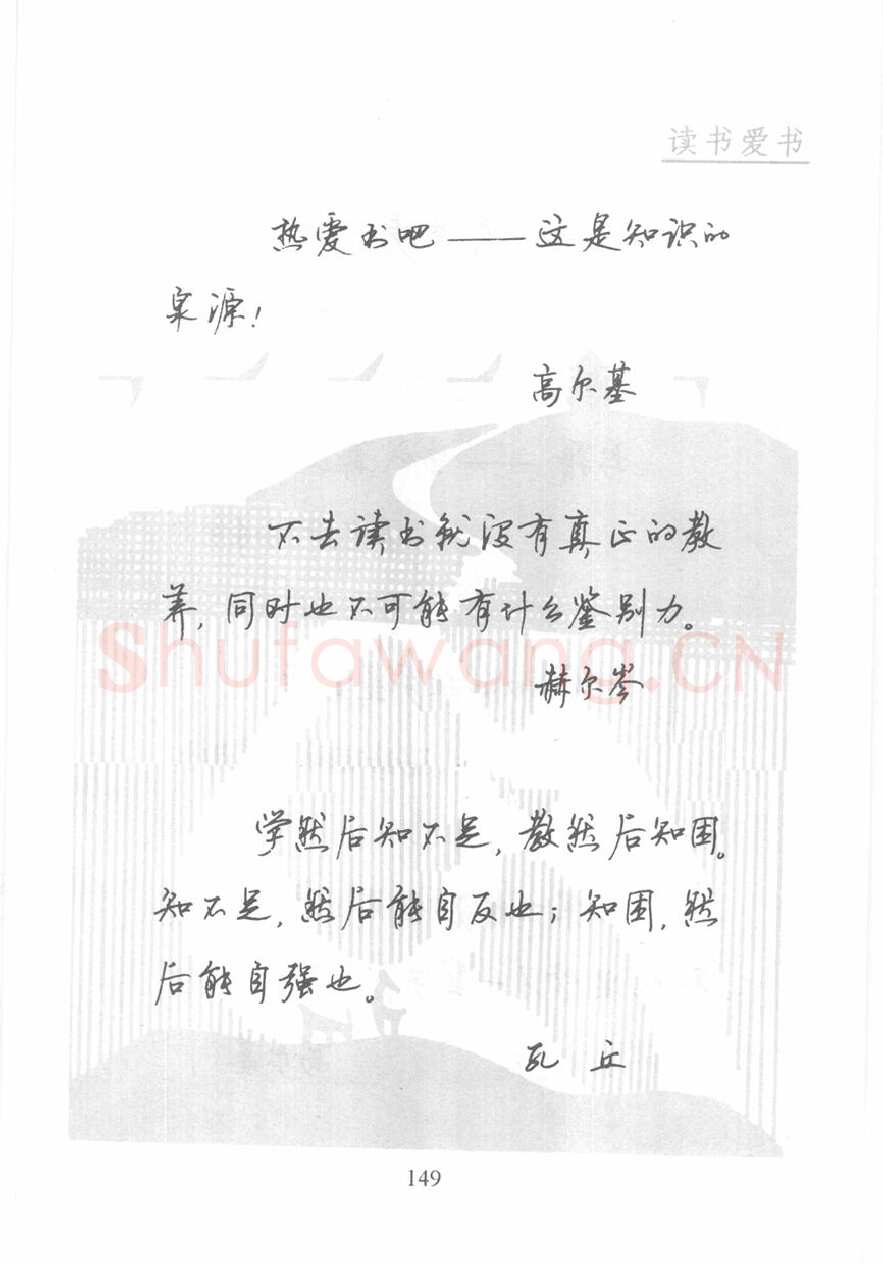 读书爱书
热爱书吧——这是知识的
泉源！
高尔基
不去读书就没有真正的教
养，同时也不可能有什么鉴别力。
赫尔岑
Shufawang.CN
学然后知不足，教然后知困。
知不足，然后能自反也；知困，然
后能自强也。
孔 丘
149